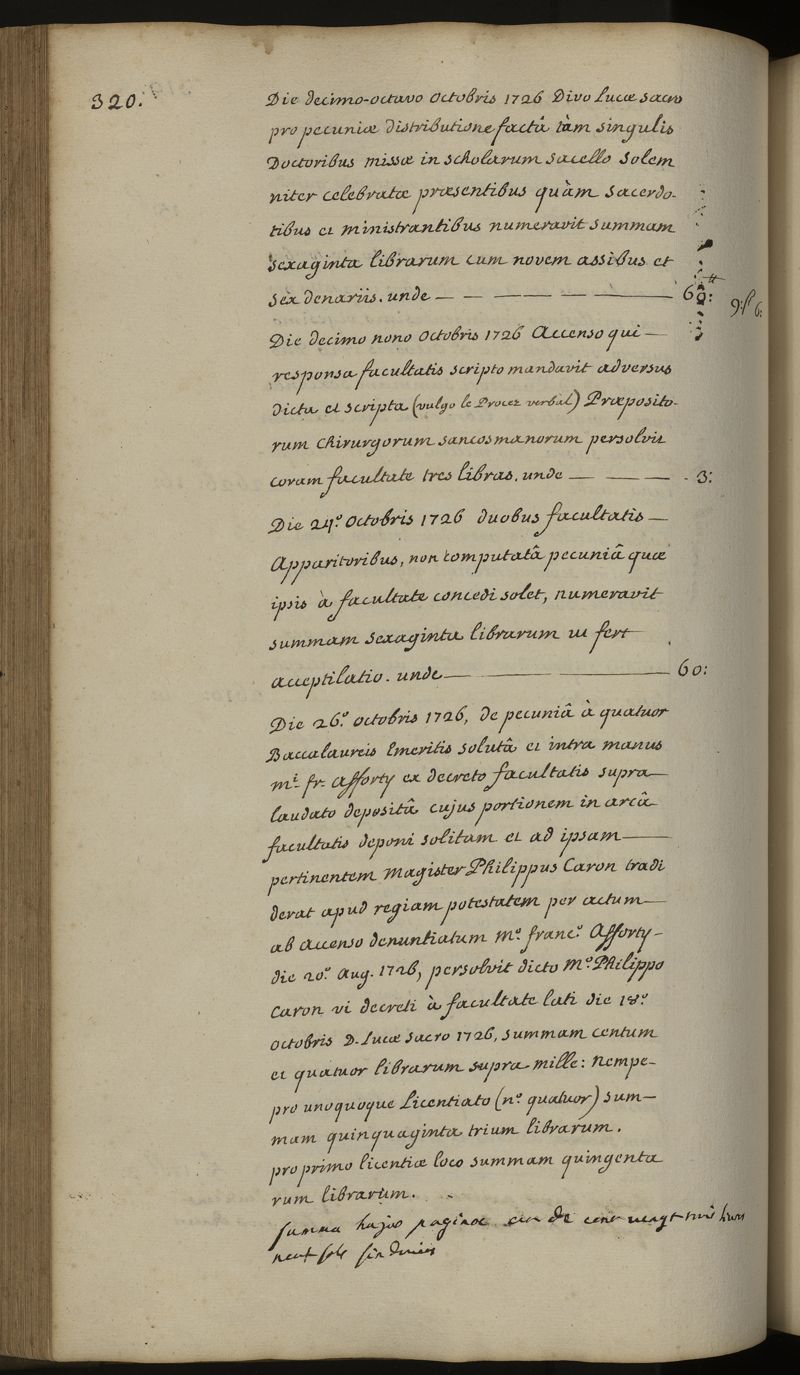 320.
Die decimo-octavo Octobris 1726 Divo Lucæ sacro
pro pecuniæ distributione factâ tàm singulis
Doctoribus missæ in scholarum sacello solem
niter celebratæ præsentibus quàm sacerdo-
tibus et ministrantibus numeravit summam
sexaginta librarum cum novem assibus et
sex denariis. unde — — — — — 60: 9: 6:
Die decimo nono Octobris 1726 Accenso qui —
responsa facultatis scripto mandavit adversus
dicta et scripta (vulgo le Procez verbal) Præposito-
rum Chirurgorum sancosmanorum persolvit
coram facultate tres libras. unde — — — - 3:
Die 24.º Octobris 1726 duobus facultatis —
Apparitoribus, non computatâ pecuniâ quæ
ipsis à facultate concedi solet, numeravit
summam sexaginta librarum ut fert
acceptilatio. unde — — — 60:
Die 26.º octobris 1726, de pecuniâ à quatuor
Baccalaureis Emeritis solutâ et intra manus
m.i fr. Afforty ex decreto facultatis supra —
laudato depositâ cujus portionem in arcâ
facultatis deponi solitam et ad ipsam —
pertinentem Magister Philippus Caron tradi
derat apud regiam potestatem per actum —
ab Accenso denuntiatum M.º franc.º Afforty -
die 20.º Aug. 1726, persolvit dicto M.º Philippo
Caron vi decreti à facultate lati die 18.º
octobris D. Lucæ sacro 1726, summam centum
et quatuor librarum supra mille: Nempe -
pro unoquoque Licentiato (n.º quatuor) sum —
mam quinquaginta trium librarum.
pro primo licentiæ loco summam quingenta
rum librarum.
summa hujus paginæ est de cent vingt trois livres
neuf sols six deniers